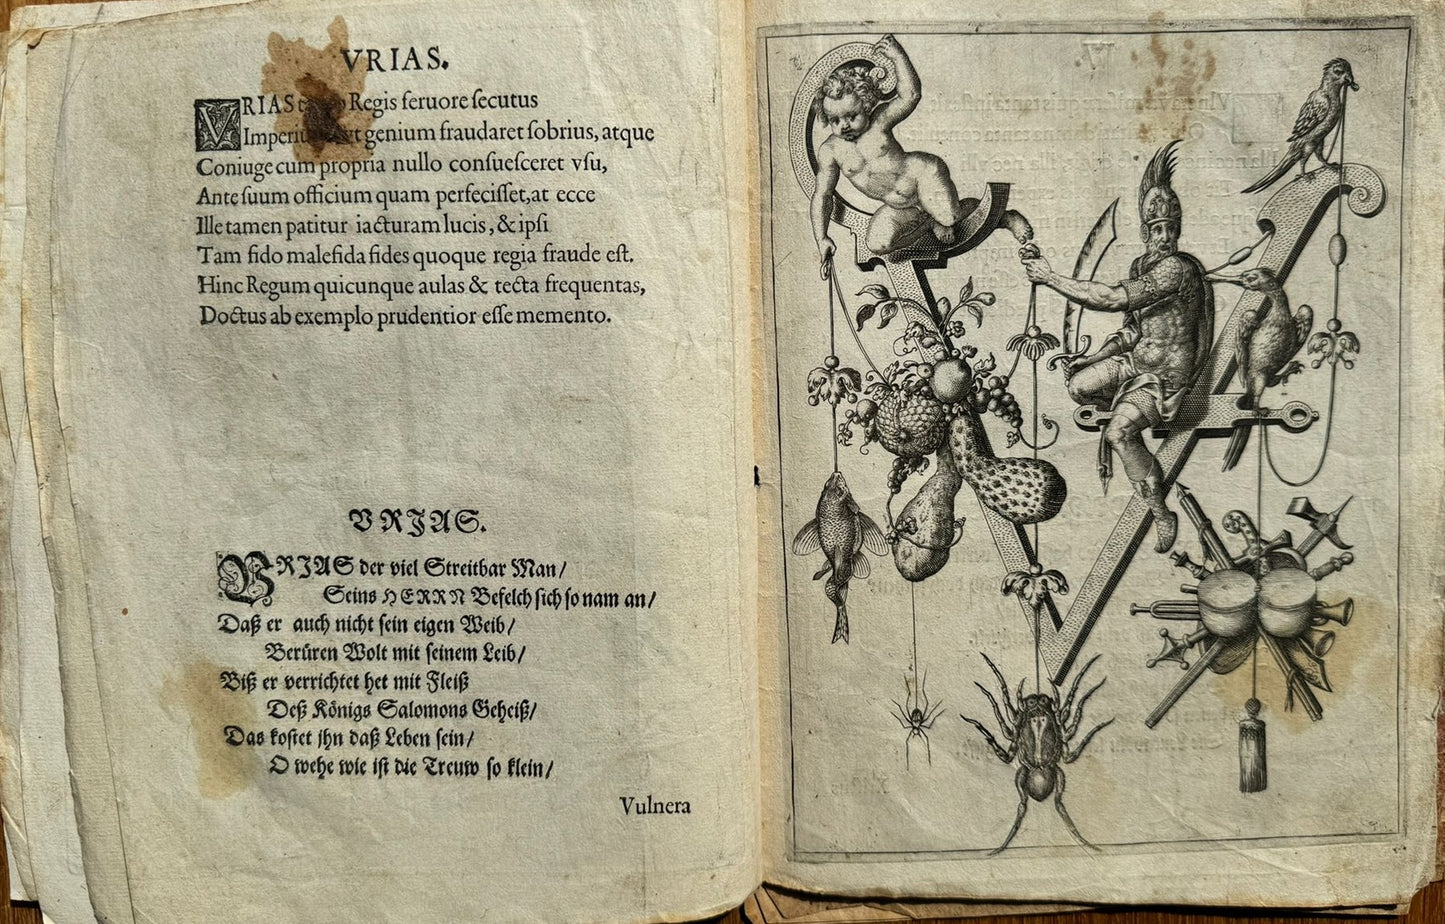 VRIAS.
VRIAS Regis feruore ſecutus
genium fraudaret ſobrius, atque
Coniuge cum propria nullo conſueſceret vſu,
Ante ſuum officium quam perfeciſſet, at ecce
Ille tamen patitur iacturam lucis, & ipſi
Tam fido malefida fides quoque regia fraude eſt.
Hinc Regum quicunque aulas & tecta frequentas,
Doctus ab exemplo prudentior eſſe memento.
VRIAS.
VRIAS der viel Streitbar Man/
Seins HERRN Befelch ſich ſo nam an/
Daß er auch nicht ſein eigen Weib/
Berüren Wolt mit ſeinem Leib/
Biß er verrichtet het mit Fleiß
Deß Königs Salomons Geheiß/
Das koſtet jhn daß Leben ſein/
O wehe wie iſt die Treuw ſo klein/
Vulnera